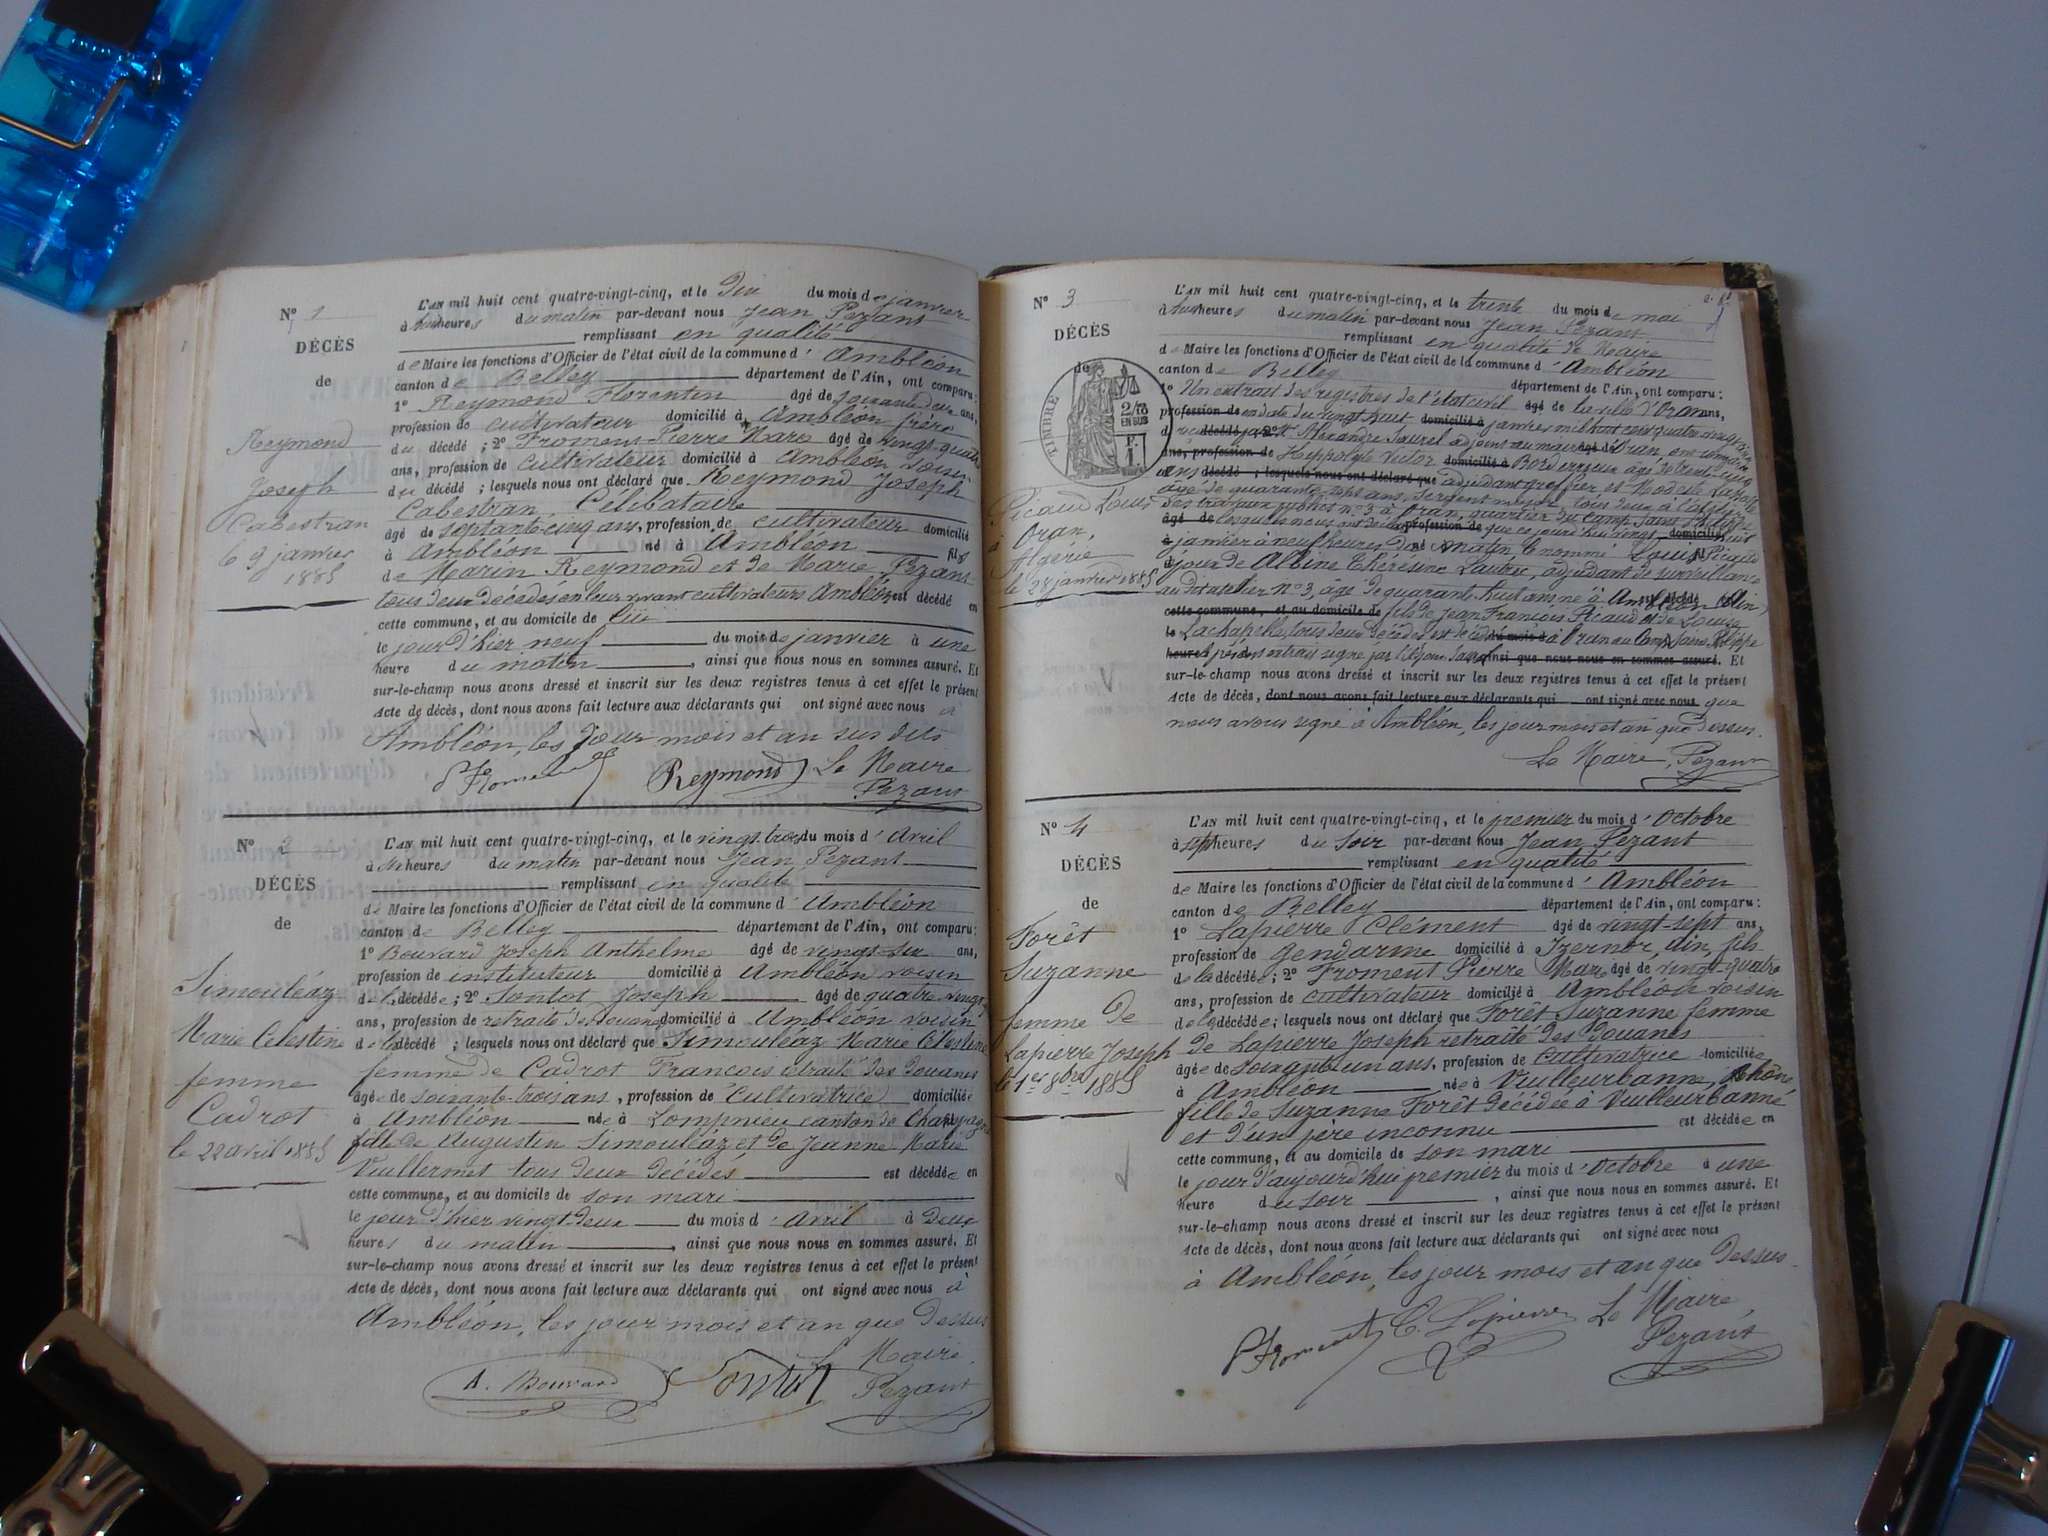 N° 1
DÉCÈS
de
Reymond
Joseph
Cabestran
le 9 janvier
1885
L'AN mil huit cent quatre-vingt-cinq, et le Dix du mois de janvier
à huit heures du matin par-devant nous Jean Pezant
remplissant en qualité
de Maire les fonctions d'Officier de l'état civil de la commune d'Ambléon
canton de Belley département de l'Ain, ont comparu:
1° Reymond Florentin âgé de soixante deux ans,
profession de cultivateur domicilié à Ambléon frère
du décédé; 2° Froment Pierre Marc âgé de vingt-quatre
ans, profession de cultivateur domicilié à Ambléon voisin
du décédé; lesquels nous ont déclaré que Reymond Joseph
Cabestran Célibataire
âgé de septante-cinq ans, profession de cultivateur domicilié
à Ambléon né à Ambléon fils
de Marin Reymond et de Marie Pezant
tous deux décédés en leur vivant cultivateurs Ambléon est décédé en
cette commune, et au domicile de lui
le jour d'hier neuf du mois de janvier à une
heure du matin, ainsi que nous nous en sommes assuré. Et
sur-le-champ nous avons dressé et inscrit sur les deux registres tenus à cet effet le présent
Acte de décès, dont nous avons fait lecture aux déclarants qui ont signé avec nous à
Ambléon, les jour mois et an sus dits
P Froment Reymond Le Maire
Pezant
N° 2
DÉCÈS
de
Simouléaz
Marie Célestine
femme
Cadrot
le 22 avril 1885
L'AN mil huit cent quatre-vingt-cinq, et le vingt-trois du mois d'Avril
à six heures du matin par-devant nous Jean Pezant
remplissant en qualité
de Maire les fonctions d'Officier de l'état civil de la commune d'Ambléon
canton de Belley département de l'Ain, ont comparu:
1° Bouvard Joseph Anthelme âgé de vingt-six ans,
profession de instituteur domicilié à Ambléon voisin
de la décédée; 2° Sontot Joseph âgé de quatre vingt
ans, profession de retraité des Douanes domicilié à Ambléon voisin
de la décédé; lesquels nous ont déclaré que Simouléaz Marie Célestine
femme de Cadrot François retraité des Douanes
âgée de soixante-trois ans, profession de Cultivatrice domiciliée
à Ambléon née à Lompnieu canton de Champagne
fille de Augustin Simouléaz et de Jeanne Marie
Vuillermet tous deux décédés est décédée en
cette commune, et au domicile de son mari
le jour d'hier vingt deux du mois d'Avril à Deux
heures du matin, ainsi que nous nous en sommes assuré. Et
sur-le-champ nous avons dressé et inscrit sur les deux registres tenus à cet effet le présent
Acte de décès, dont nous avons fait lecture aux déclarants qui ont signé avec nous à
Ambléon, les jour mois et an que dessus
Le Maire
A. Bouvard Sontot Pezant
N° 3
DÉCÈS
de
TIMBRE
2/10
EN SUS
Picaud Louis
à Oran,
Algérie
le 28 janvier 1885
L'AN mil huit cent quatre-vingt-cinq, et le trente du mois de mai
à huit heures du matin par-devant nous Jean Pezant
remplissant en qualité de Maire
de Maire les fonctions d'Officier de l'état civil de la commune d'Ambléon
canton de Belley département de l'Ain, ont comparu:
1° Un extrait des registres de l'état civil âgé de la ville d'Oran ans,
profession de en date du vingt huit domicilié à janvier mil huit cent quatre vingt
décédé; 2° Alexandre adjoint au maire âgé de d'Oran, ont comparu
ans, profession de Hippolyte Victor domicilié à âgé de
ans décédé; lesquels nous ont déclaré que adjudant greffier et Modeste
âgé de quarante sept ans, sergent major, tous deux à l'atelier
des travaux publics n° 3 à Oran, quartier du Camp Saint Philippe
âgé de lesquels nous ont déclaré profession de que ce jourd'hui vingt domicilié huit
à janvier à neuf heures du né matin le nommé Louis fils Picaud
époux de Albine Thérésine adjudant de surveillance
au dit atelier n° 3, âgé de quarante huit ans né à Ambléon est décédé (Ain)
cette commune, et au domicile de fils de Jean François Picaud et de Louise
le Lachapelle, tous deux décédés est décédé du mois à Oran au Camp Saint Philippe
heure présent extrait signé par l'adjoint ainsi que nous nous en sommes assuré. Et
sur-le-champ nous avons dressé et inscrit sur les deux registres tenus à cet effet le présent
Acte de décès, dont nous avons fait lecture aux déclarants qui ont signé avec nous que
nous avons signé à Ambléon, les jour mois et an que dessus.
Le Maire, Pezant
N° 4
DÉCÈS
de
Forêt
Suzanne
femme de
Lapierre Joseph
le 1er 8bre 1885
L'AN mil huit cent quatre-vingt-cinq, et le premier du mois d'Octobre
à sept heures du soir par-devant nous Jean Pezant
remplissant en qualité
de Maire les fonctions d'Officier de l'état civil de la commune d'Ambléon
canton de Belley département de l'Ain, ont comparu:
1° Lapierre Clément âgé de vingt-sept ans,
profession de Gendarme domicilié à Izernor, Ain, fils
de la décédée; 2° Froment Pierre Marc âgé de vingt-quatre
ans, profession de cultivateur domicilié à Ambléon voisin
de la décédée; lesquels nous ont déclaré que Forêt Suzanne femme
de Lapierre Joseph retraité des Douanes
âgée de soixante un ans, profession de Cultivatrice domiciliée
à Ambléon née à Vuilleurbanne, Rhône,
fille de Suzanne Forêt décédée à Vuilleurbanne
et d'un père inconnu est décédée en
cette commune, et au domicile de son mari
le jour d'aujourd'hui premier du mois d'Octobre à une
heure du soir, ainsi que nous nous en sommes assuré. Et
sur-le-champ nous avons dressé et inscrit sur les deux registres tenus à cet effet le présent
Acte de décès, dont nous avons fait lecture aux déclarants qui ont signé avec nous
à Ambléon, les jour mois et an que dessus.
P Froment C. Lapierre Le Maire,
Pezant